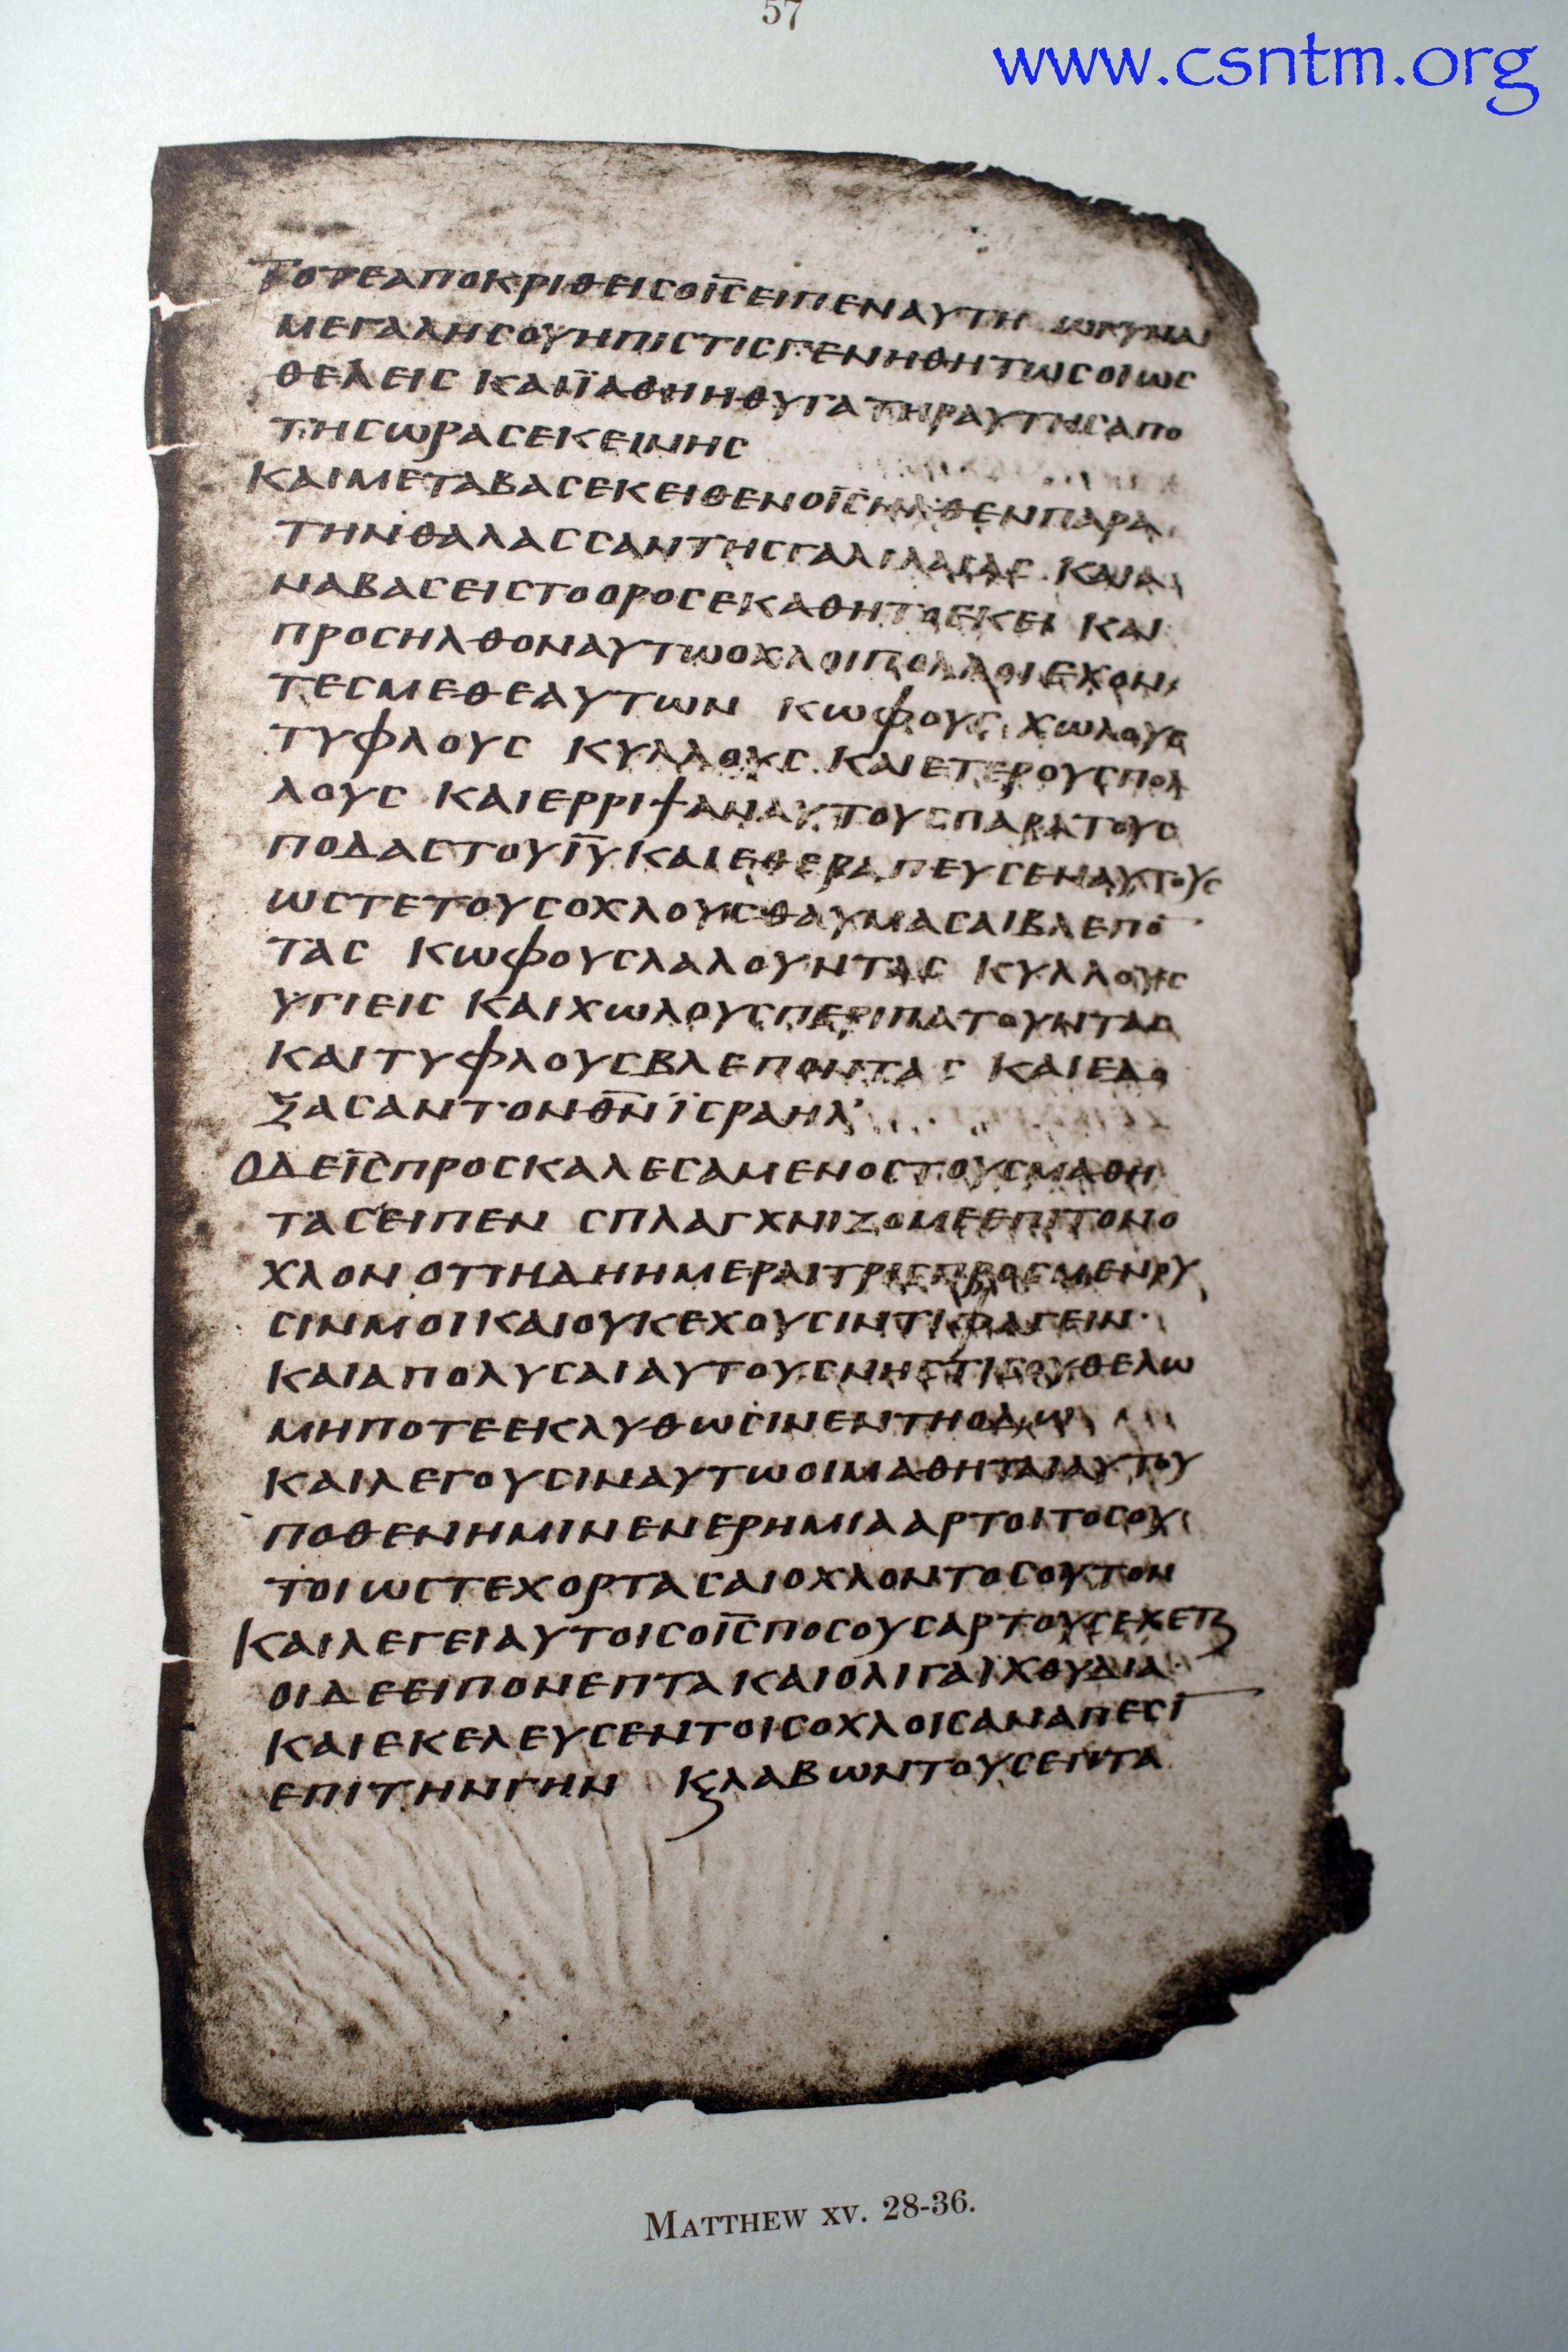 57
www.csntm.org
ΤΟΤΕΑΠΟΚΡΙΘΕΙСΟΙ̅С̅ΕΙΠΕΝΑΥΤΗ ΩΓΥΝΑΙ
ΜΕΓΑΛΗСΟΥΗΠΙСΤΙСΓΕΝΗΘΗΤΩСΟΙΩС
ΘΕΛΕΙС ΚΑΙΪΑΘΗΗΘΥΓΑΤΗΡΑΥΤΗСΑΠΟ
ΤΗСΩΡΑСΕΚΕΙΝΗС
ΚΑΙΜΕΤΑΒΑСΕΚΕΙΘΕΝΟΙ̅С̅ΗΛΘΕΝΠΑΡΑ
ΤΗΝΘΑΛΑССΑΝΤΗСΓΑΛΙΛΑΙΑС ΚΑΙΑ
ΝΑΒΑСΕΙСΤΟΟΡΟСΕΚΑΘΗΤΟΕΚΕΙ ΚΑΙ
ΠΡΟСΗΛΘΟΝΑΥΤΩΟΧΛΟΙΠΟΛΛΟΙΕΧΟΝ
ΤΕСΜΕΘΕΑΥΤΩΝ ΚΩΦΟΥС ΧΩΛΟΥС
ΤΥΦΛΟΥС ΚΥΛΛΟΥС ΚΑΙΕΤΕΡΟΥСΠΟΛ
ΛΟΥС ΚΑΙΕΡΡΙΨΑΝΑΥΤΟΥСΠΑΡΑΤΟΥС
ΠΟΔΑСΤΟΥΙ̅Υ̅ΚΑΙΕΘΕΡΑΠΕΥСΕΝΑΥΤΟΥС
ΩСΤΕΤΟΥСΟΧΛΟΥСΘΑΥΜΑСΑΙΒΛΕΠΟ̅
ΤΑС ΚΩΦΟΥСΛΑΛΟΥΝΤΑС ΚΥΛΛΟΥС
ΥΓΙΕΙС ΚΑΙΧΩΛΟΥСΠΕΡΙΠΑΤΟΥΝΤΑС
ΚΑΙΤΥΦΛΟΥСΒΛΕΠΟΝΤΑС ΚΑΙΕΔΟ
ΞΑСΑΝΤΟΝΘ̅Ν̅ΪСΡΑΗΛ'
ΟΔΕΙ̅С̅ΠΡΟСΚΑΛΕСΑΜΕΝΟСΤΟΥСΜΑΘΗ
ΤΑСΕΙΠΕΝ СΠΛΑΓΧΝΙΖΟΜΕΕΠΙΤΟΝΟ
ΧΛΟΝ ΟΤΙΗΔΗΗΜΕΡΑΙΤΡΙСΠΡΟСΜΕΝΟΥ
СΙΝΜΟΙΚΑΙΟΥΚΕΧΟΥСΙΝΤΙΦΑΓΕΙΝ·
ΚΑΙΑΠΟΛΥСΑΙΑΥΤΟΥСΝΗСΤΙСΟΥΘΕΛΩ
ΜΗΠΟΤΕΕΚΛΥΘΩСΙΝΕΝΤΗΟΔΩ
ΚΑΙΛΕΓΟΥСΙΝΑΥΤΩΟΙΜΑΘΗΤΑΙΑΥΤΟΥ
ΠΟΘΕΝΗΜΙΝΕΝΕΡΗΜΙΑΑΡΤΟΙΤΟСΟΥ
ΤΟΙΩСΤΕΧΟΡΤΑСΑΙΟΧΛΟΝΤΟСΟΥΤΟΝ
ΚΑΙΛΕΓΕΙΑΥΤΟΙСΟΙ̅С̅ΠΟСΟΥСΑΡΤΟΥСΕΧΕΤΕ
ΟΙΔΕΕΙΠΟΝΕΠΤΑΚΑΙΟΛΙΓΑΙΧΘΥΔΙΑ
ΚΑΙΕΚΕΛΕΥСΕΝΤΟΙСΟΧΛΟΙСΑΝΑΠΕСΙ̅
ΕΠΙΤΗΝΓΗΝ ΚϛΛΑΒΩΝΤΟΥСΕΠΤΑ
MATTHEW XV. 28-36.